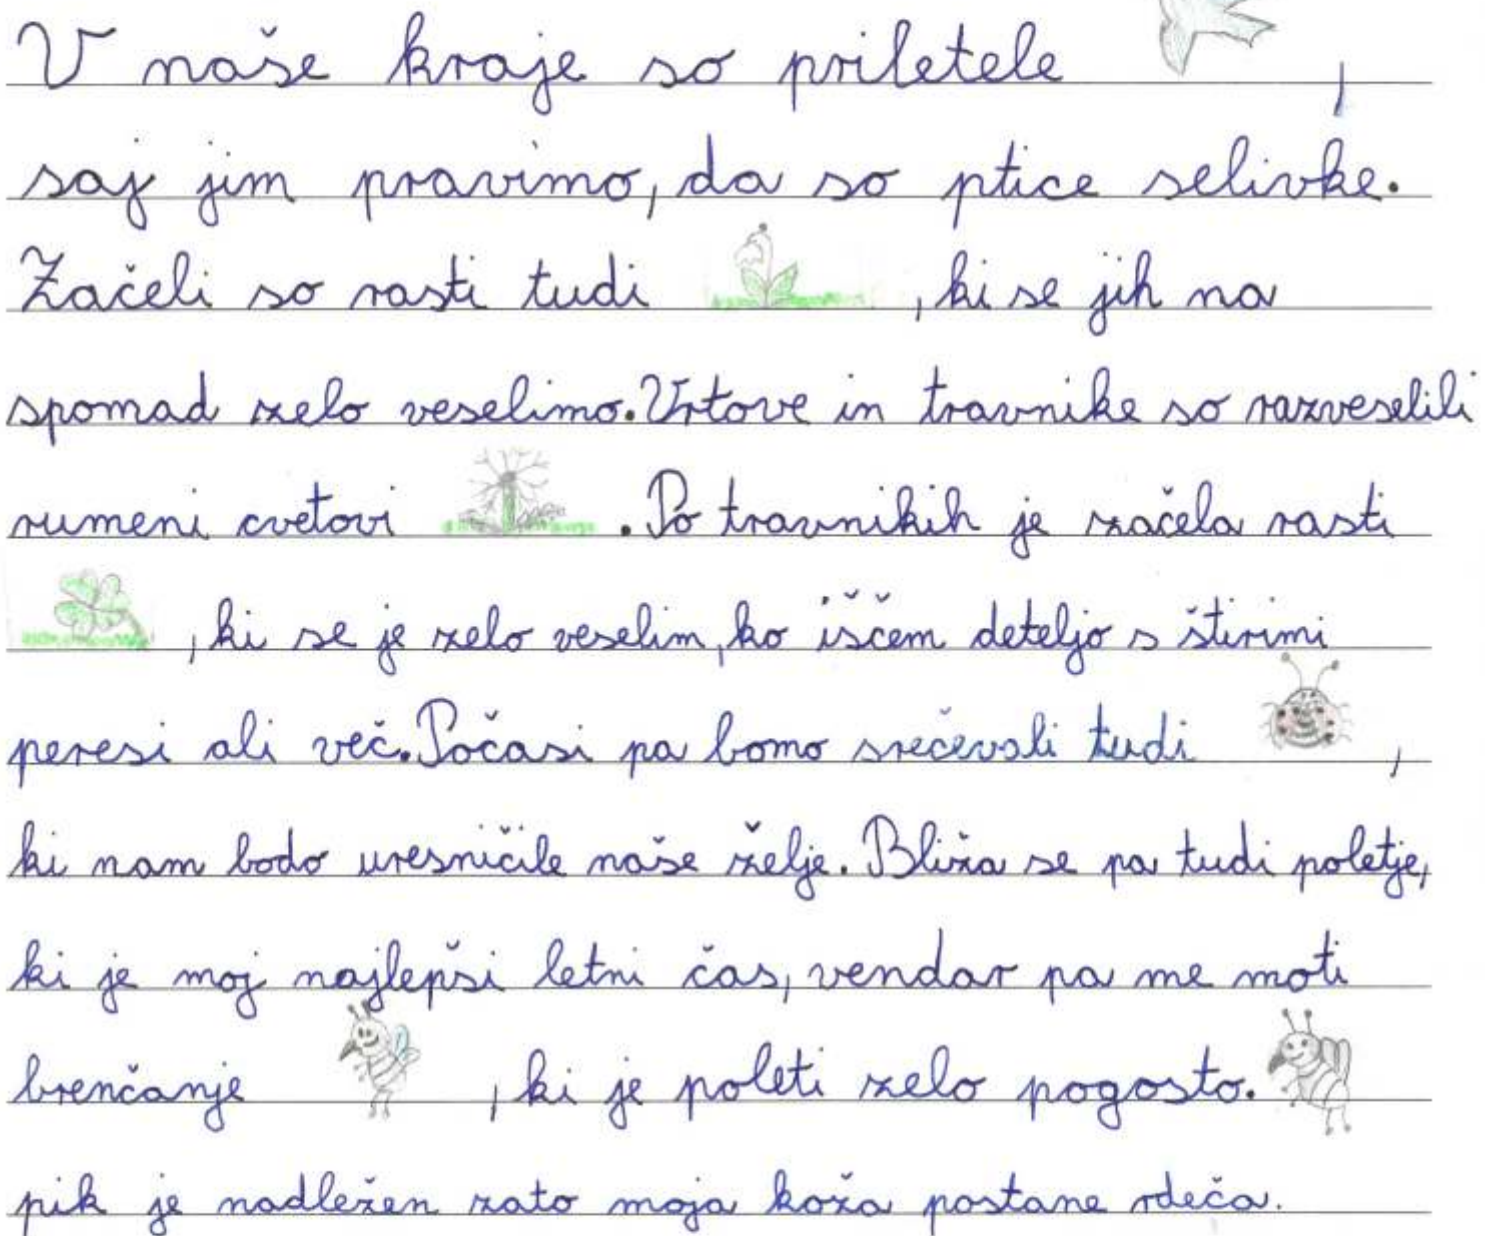 V naše kraje so priletele ,
saj jim pravimo, da so ptice selivke.
Začeli so rasti tudi , ki se jih na
spomad zelo veselimo. Vrtove in travnike so razveselili
rumeni cvetovi . Po travnikih je začela rasti
, ki se je zelo veselim, ko iščem deteljo s štirimi
peresi ali več. Počasi pa bomo srečevali tudi ,
ki nam bodo uresničile naše želje. Bliža se pa tudi poletje,
ki je moj najlepši letni čas, vendar pa me moti
brenčanje , ki je poleti zelo pogosto.
pik je nadležen zato moja koža postane rdeča.